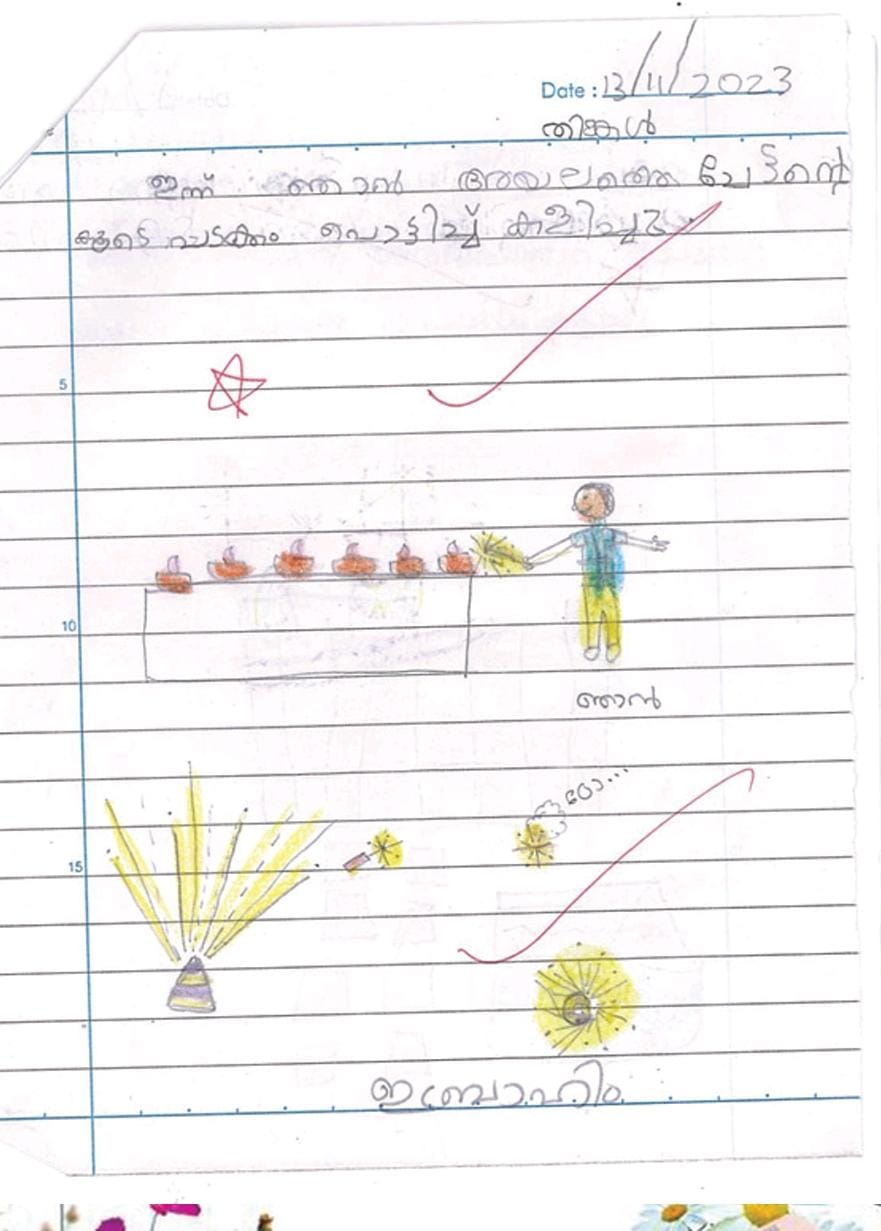 Date : 13/11/2023
തിങ്കൾ
ഇന്ന് ഞാൻ അയലത്തെ ചേട്ടന്റെ
കൂടെ പടക്കം പൊട്ടിച്ച് കളിച്ചു
5
10
ഞാൻ
ഠോ...
15
ഇബ്രാഹിം